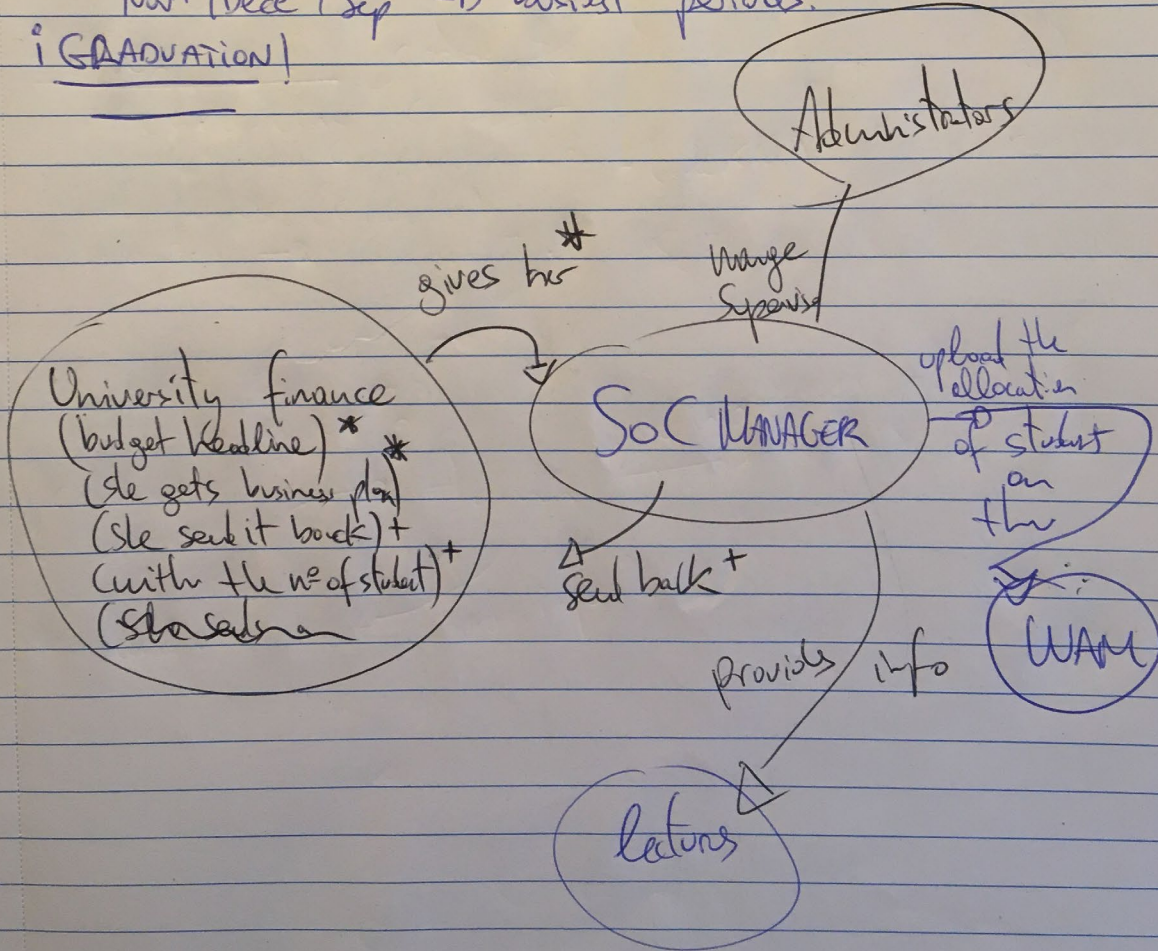 Nov / Dece / Sep → busiest periods.
¡GRADUATION!
Administrators
gives her *
manage
Supervise
University finance
(budget headline) *
(she gets business plan) *
(she send it back) +
(with the nº of student) +
SOC MANAGER
upload the
allocation
of student
on
the
send back +
WAM
provides info
lecturs